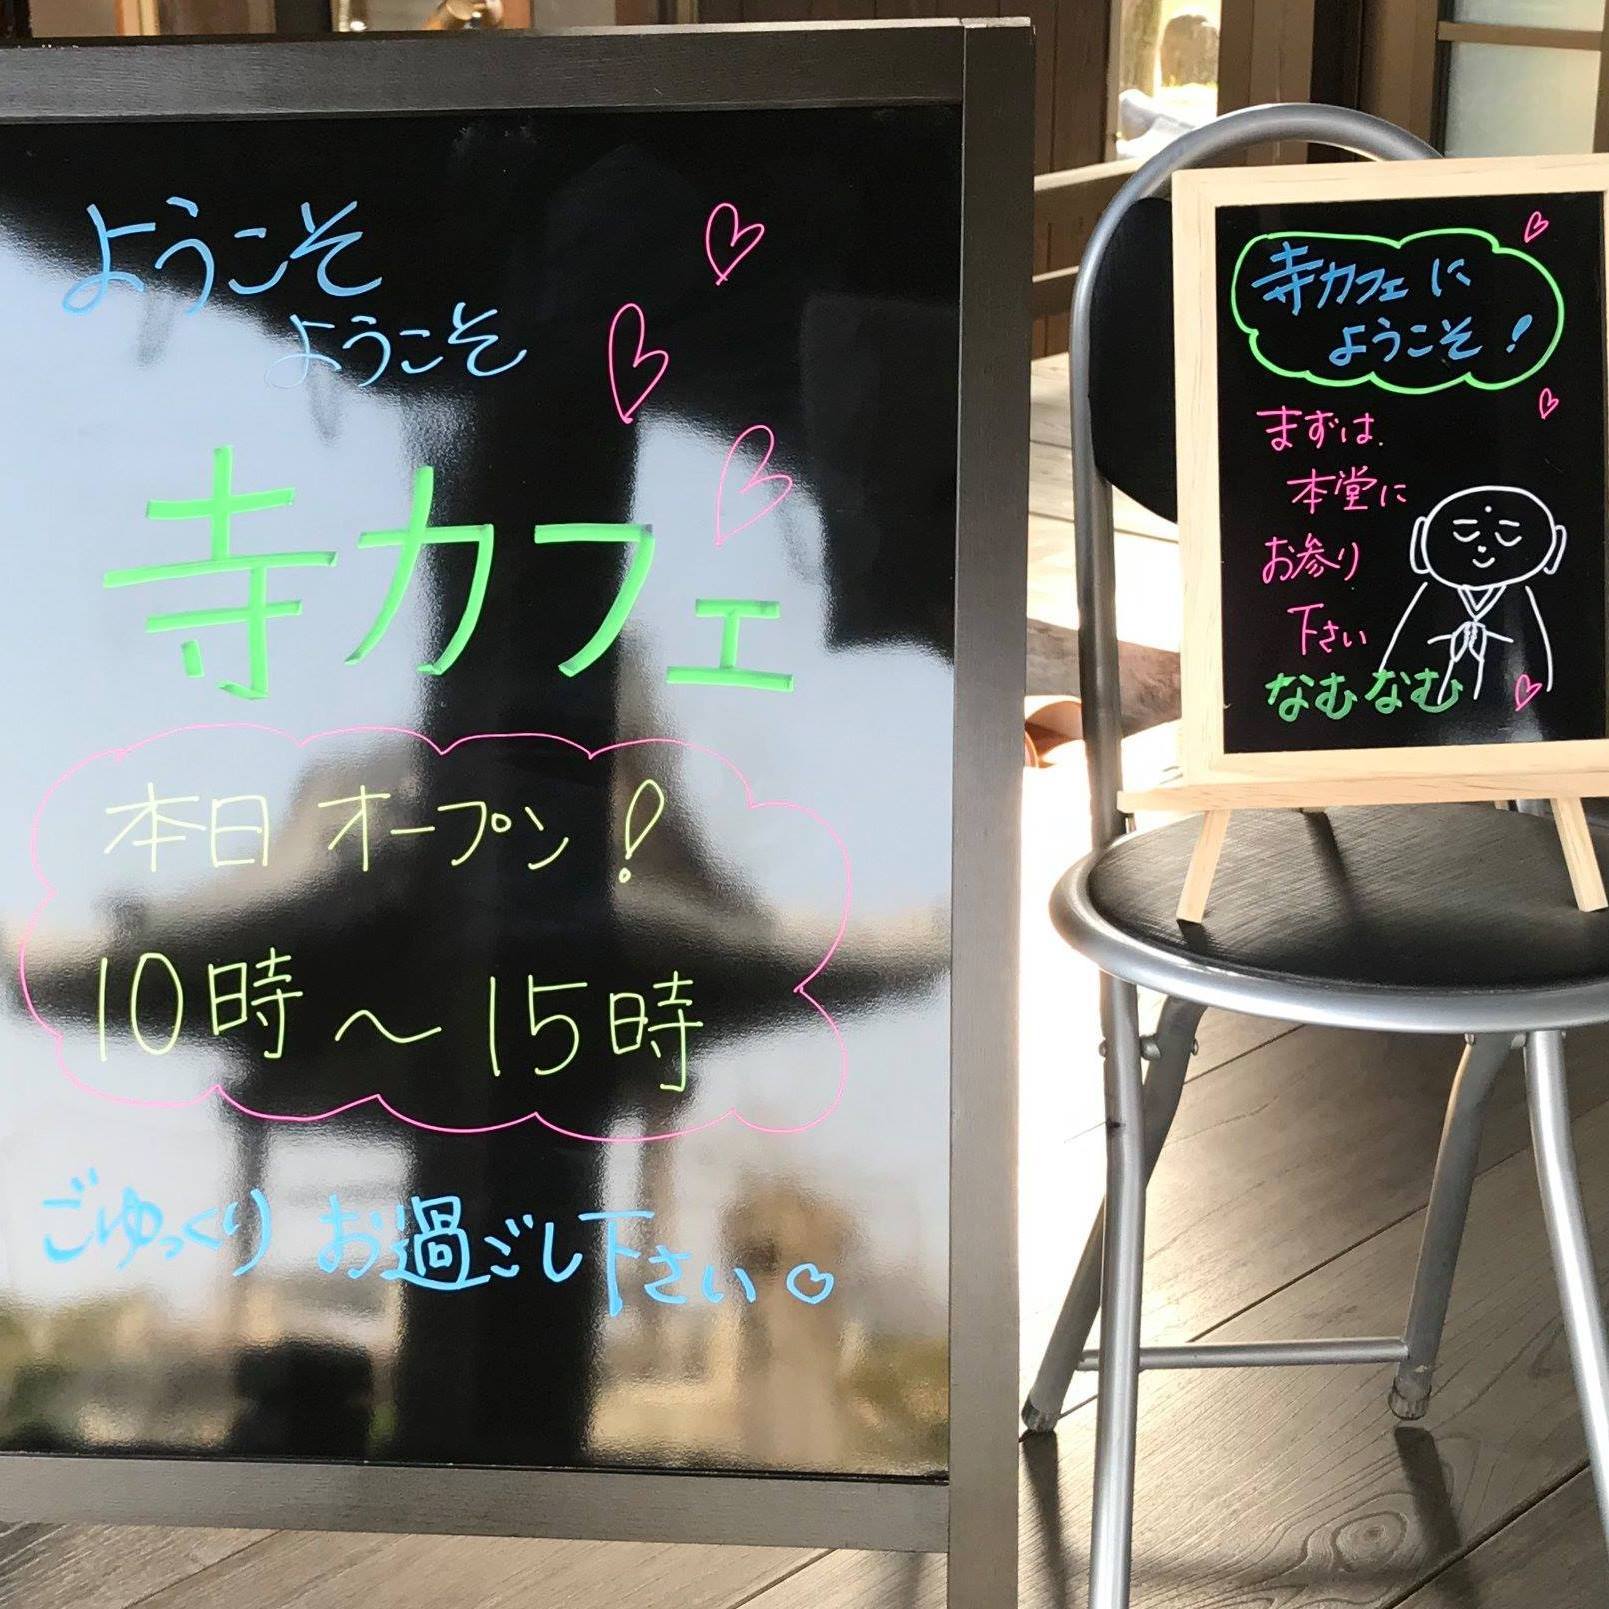 ようこそ
ようこそ
寺カフェ
本日オープン!
10時〜15時
ごゆっくり お過ごし下さい
寺カフェに
ようこそ!
まずは
本堂に
お参り
下さい
なむなむ